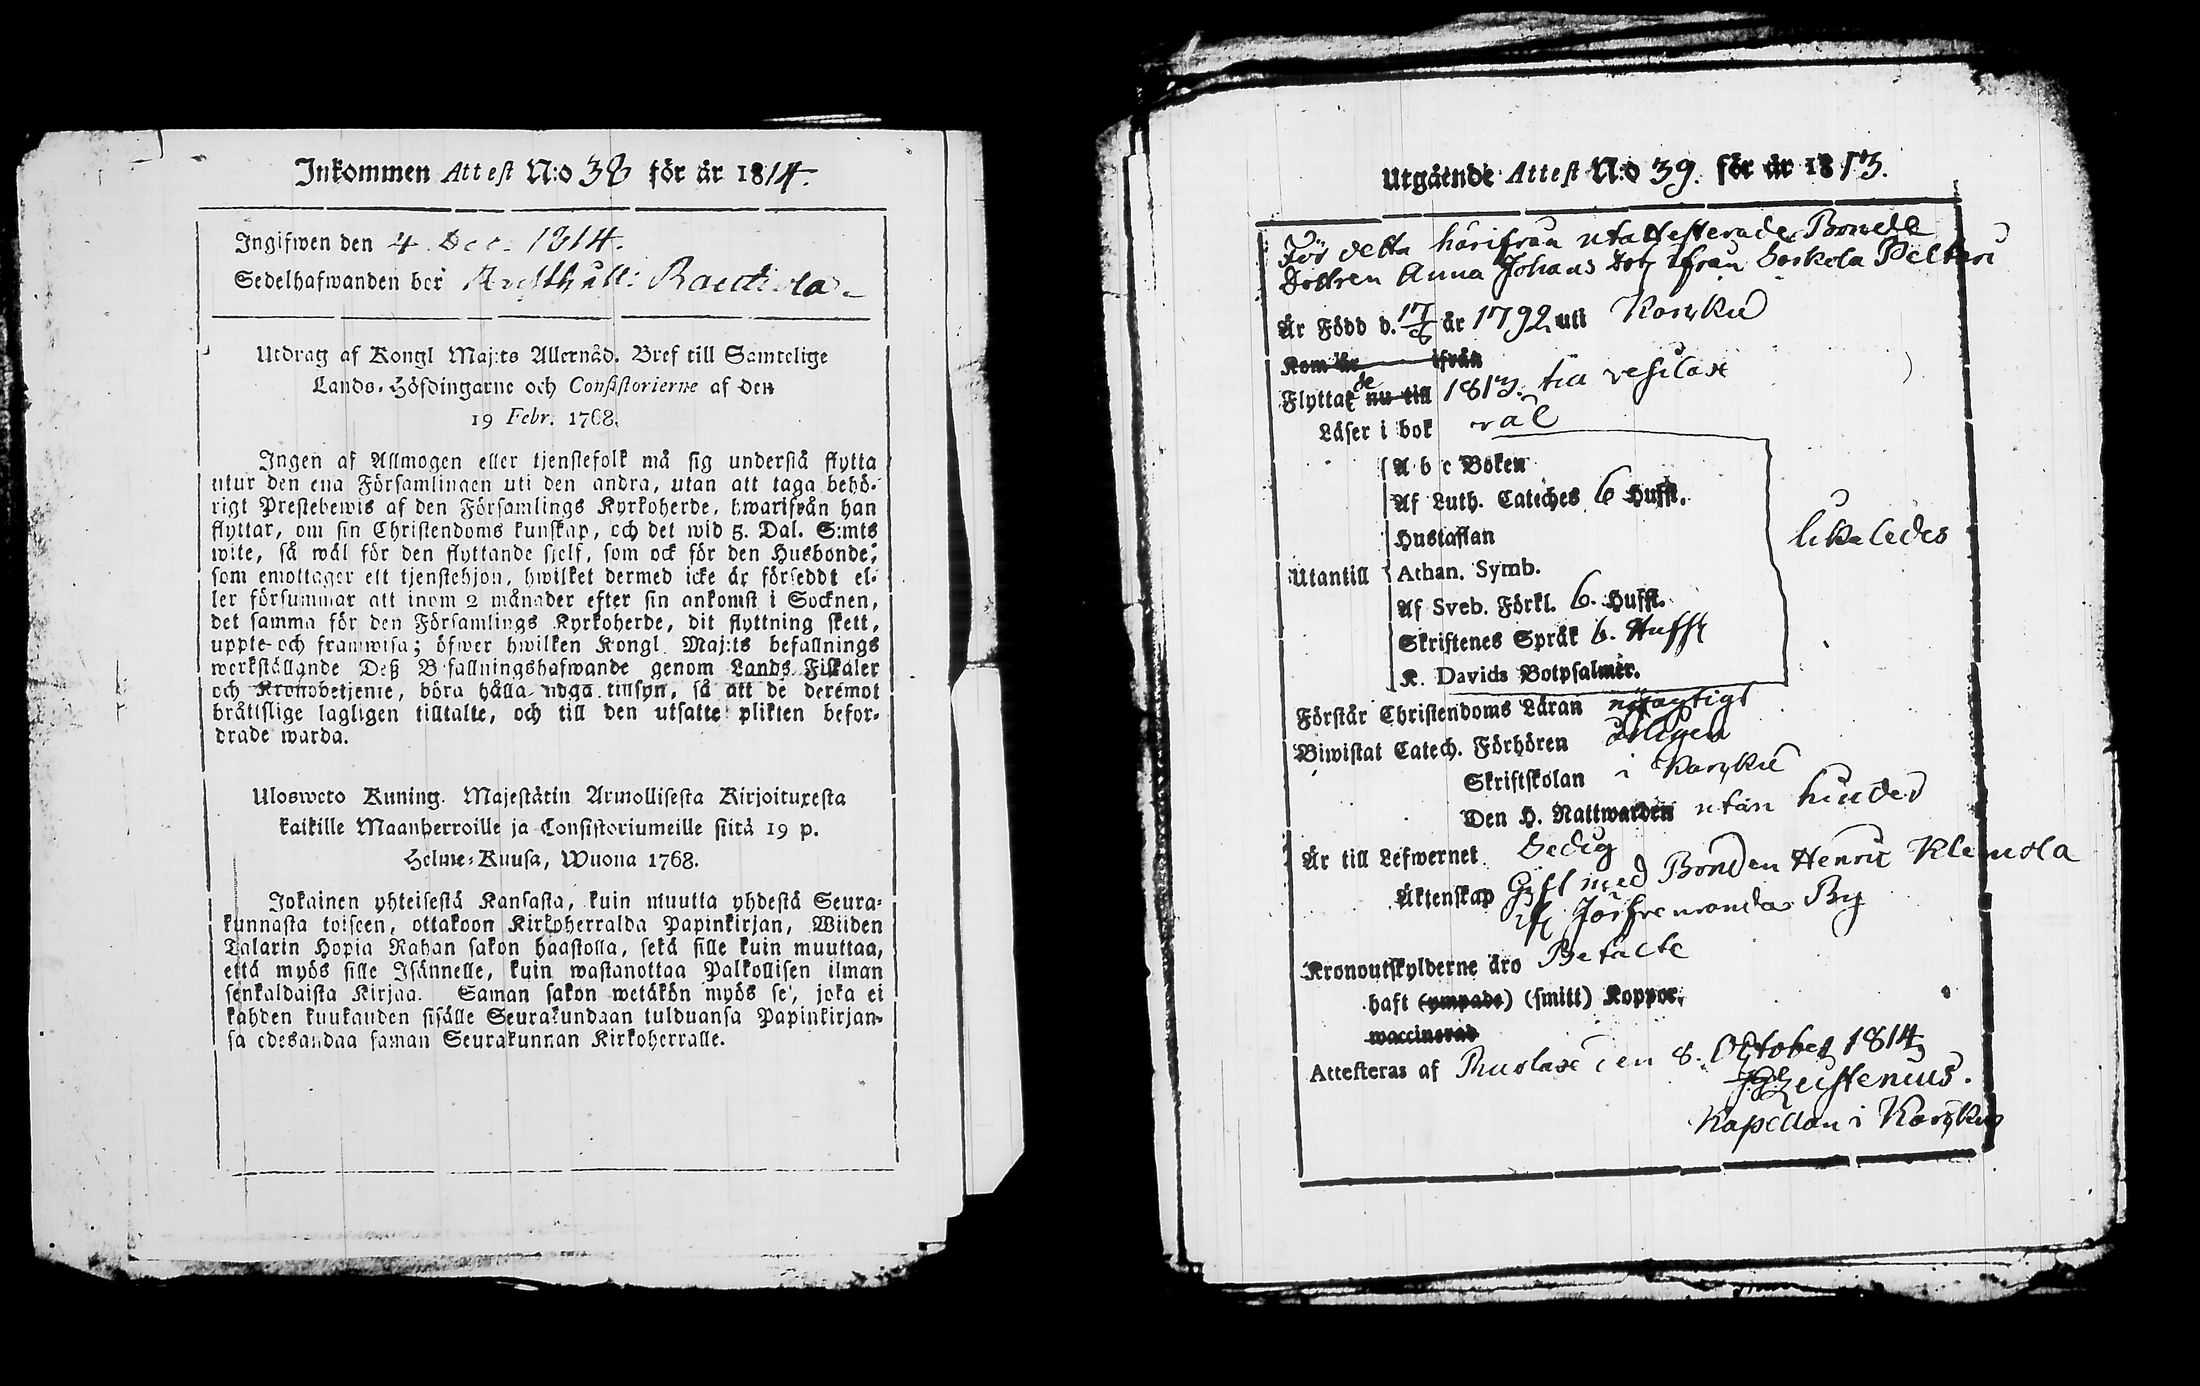 Inkommen Attest N:o 38 för år 1814.
Ingifwen den 4 Dec. 1814.
Sedelhafwanden bor
Utdrag af Kongl Maj:ts Allernåd. Bref till Samtelige
Lands-Höfdingarne och Consistorierne af den
19 Febr. 1768.
Ingen af Allmogen eller tjenstefolk må sig understå flytta
utur den ena Församlingen uti den andra, utan att taga behö-
rigt Prestebewis af den Församlings Kyrkoherde, hwarifrån han
flyttar, om sin Christendoms kunskap, och det wid 5. Dal. S:mts
wite, så wäl för den flyttande sjelf, som ock för den Husbonde,
som emottager ett tjenstehjon, hwilket dermed icke är förseddt el-
ler försummar att inom 2 månader efter sin ankomst i Socknen,
det samma för den Församlings Kyrkoherde, dit flyttning skett,
uppte- och framwisa; öfwer hwilken Kongl. Maj:ts befallnings
werkställande Deß Befallningshafwande genom Lands Fiskaler
och Kronobetjente, böra hålla noga tillsyn, så att de deremot
bråtislige lagligen tilltalte, och till den utsatte plikten befor-
drade warda.
Ulosweto Kuning. Majestätin Armollisesta Kirjoituxesta
kaikille Maanherroille ja Consistoriumeille siitä 19 p.
Helme-Kuusa, Wuona 1768.
Jokainen yhteisestä Kansasta, kuin muutta yhdestä Seura-
kunnasta toiseen, ottakoon Kirkoherralda Papinkirjan, Wiiden
Talarin Hopia Rahan sakon haastolla, sekä sille kuin muuttaa,
että myös sille Isännelle, kuin wastanottaa Palkollisen ilman
senkaldaista Kirjaa. Saman sakon wetäkön myös se, joka ei
kahden kuukauden sisälle Seurakundaan tulduansa Papinkirjan-
sa edesandaa saman Seurakunnan Kirkoherralle.
Utgående Attest N:o 39. för år 1813.
För detta härifrån utattesterade Bonde
Dottren Anna Johans Dotr ifrån Soskola Peltari
Är Född d. 17/6 år 1792 uti Karkku
Kom år ifrån
Flyttade nu till 1813. till vesilax
Läser i bok väl
Abc Boken
Af Luth. Catéches 6 Hufst.
Hustaflan
likaledes
Utantill Athan. Symb.
Af Sveb. Förkl. 6. Hufst.
Skriftenes Språk 6. Hufst
K. Davids Botpsalmer.
Förstår Christendoms Läran nöjagtigt
Biwistat Catech. Förhören årligen
Skriftskolan i Karkku
Den H. Nattwarden utan hinder
Är till Lefwernet Sedig
Äktenskap Gift med Bonden Henric Klemola
Kronoutskylderne äro Betalte
haft (ympade) (smitt) Koppor.
waccinerad
Attesteras af den 8. October 1814
Kapellan i Karkku